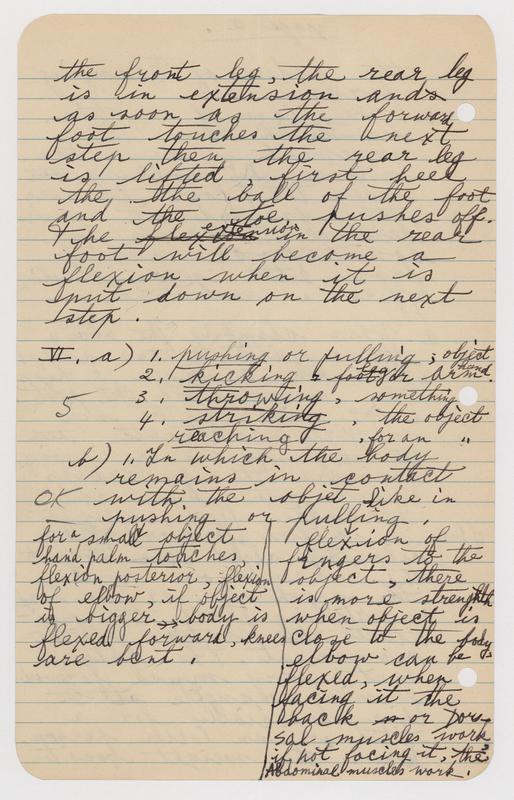 the front leg, the rear leg
is in extension ands
as soon as the forward
foot touches the next
step then the rear leg
is lifted first heel
the the ball of the foot
and the toe pushes off.
The flexion extension in the rear
foot will become a
flexion when it is
put down on the next
step.
VI. a) 1. pushing or pulling; object
2. kicking foot or hand.
5 3. throwing, something
4. striking, the object
reaching, for an "
b) 1. In which the body
remains in contact
OK with the objet like in
pushing or pulling.
for a small object
hand palm touches,
flexion posterior, flexion
of elbow, if object
is bigger, body is
flexed forward, knees
are bent.
flexion of
fingers to the
object, there
is more strenghth
when object is
close to the body,
elbow can be
flexed, when
facing it the
back or Dor-
sal muscles work
is not facing it, the
Abdominal muscles work.